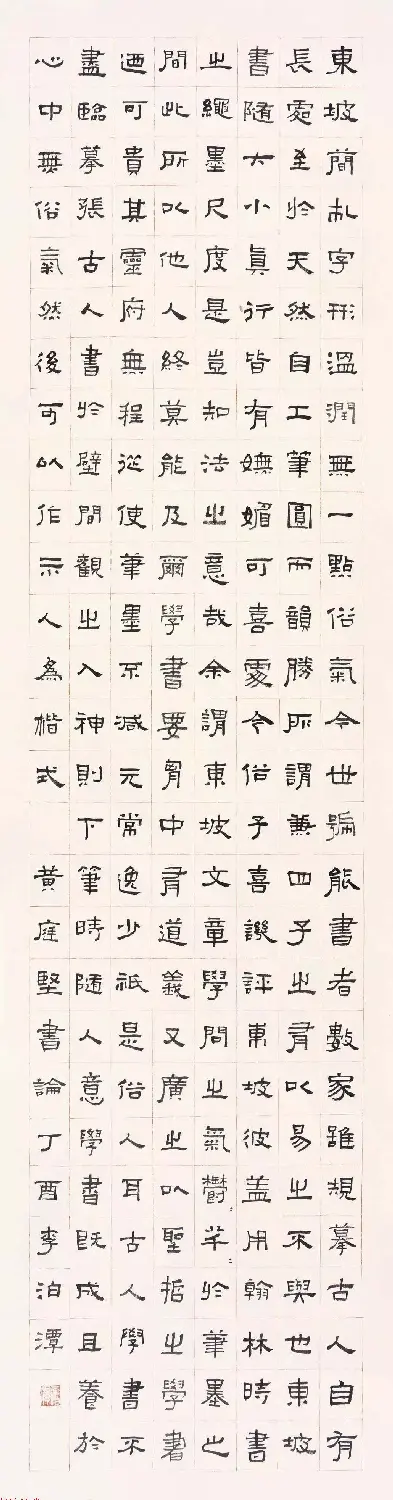 東坡簡札字形溫潤無一點俗氣今世號能書者數家雖規摹古人自有
長處至於天然自工筆圓而韻勝所謂兼四子之有以易之不與也東坡
書随大小眞行皆有嫵媚可喜處今俗子喜譏評東坡彼蓋用翰林時書
之繩墨尺度是豈知法之意哉余謂東坡文章學問之氣鬱芊於筆墨之
間此所以他人終莫能及爾學書要胷中有道義又廣之以聖哲之學書
迺可貴其靈府無程從使筆墨不減元常逸少祇是俗人耳古人學書不
盡臨摹張古人書於壁間觀之入神則下筆時随人意學書既成且養於
心中無俗氣然後可以作示人為楷式 黃庭堅書論丁酉李泊潭